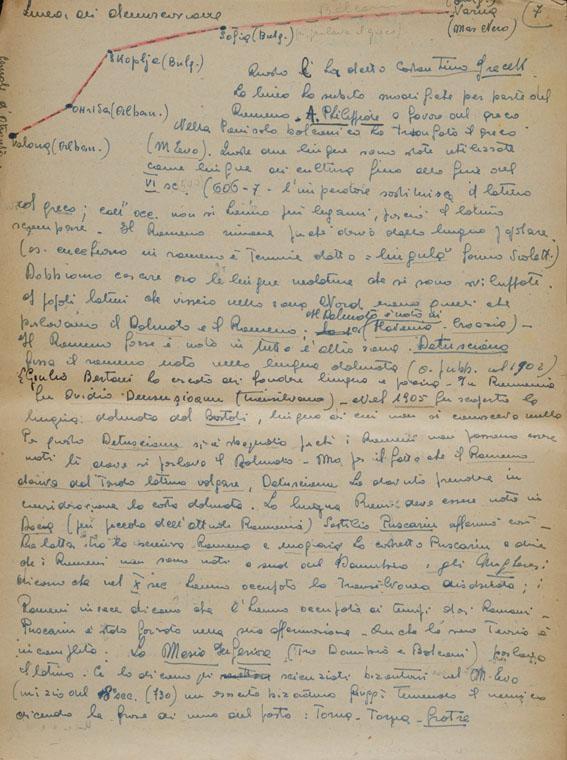 Linea di demarcazione
Balcani
Varna
(Mar Nero)
7
Sofia (Bulg.)
Skoplja (Bulg.)
Ohrida (Alban.)
Valona (Alban.)
Questo l'ha detto Costantino
La linea ha subito modifiche per parte del
Romeno A. Philippide a favore del greco
Nella Penisola balcanica ha trionfato il greco
(M. Evo). Queste due lingue sono state utilizzate
come lingue di cultura fino alla fine del
VI sec. (606-7 - l'imperatore sostituisce il latino
col greco; coll'occ. non si hanno più legami, perciò il latino
scompare. Il Romeno rimane perchè derivò dalla lingua popolare.
(es. in romeno è = lingula
Dobbiamo cercare ora le lingue neolatine che si sono sviluppate.
I popoli latini che nella zona Nord erano quelli che
parlavano il Dalmata e il Romeno; Il Dalmata è nato in
(Croazia) -
Il Romeno forse è nato in tutto e altra zona. Densusianu
fissa il romeno nato nella lingua dalmata (o. pubb. nel 1902)
Giulio Bertoni ha cercato di fondere lingua e poesia. In Rumania
fu Ovidio Densusianu (transilvano) - Nel 1905 fu scoperta la
lingua dalmata dal Bartoli, lingua di cui non si conosceva nulla
Per questo Densusianu si è sbagliato perchè i Rumeni non possono essere
nati lì dove si parlava il Dalmata - Ma per il fatto che il Romeno
deriva dal Tardo latino volgare, Densusianu ha dovuto prendere in
considerazione la costa dalmata. La lingua Rumena deve essere nata in
Dacia (più piccola dell'attuale Romania) Sextilio Puscariu affermò così -
La lotta tra la scienza Romena e magiara ha costretto Puscariu a dire
che i Rumeni non sono nati a sud del Danubio; gli Ungheresi
dicono che nel X sec. hanno occupato la Transilvania disabitata; i
Romeni invece dicono che l'hanno occupata ai tempi dei Romani -
Puscariu è stato forzato nella sua affermazione. Anche la sua Teoria è
incompleta. La Mesia Inferiore (Tra Danubio e Balcani) parlava
il latino. Ce lo dicono gli scienziati bizantini nel M. Evo
(inizio del sec. (730) un esercito bizantino fuggì temendo il nemico
dicendo la frase di uno del posto: Torna - Torna - Fratre